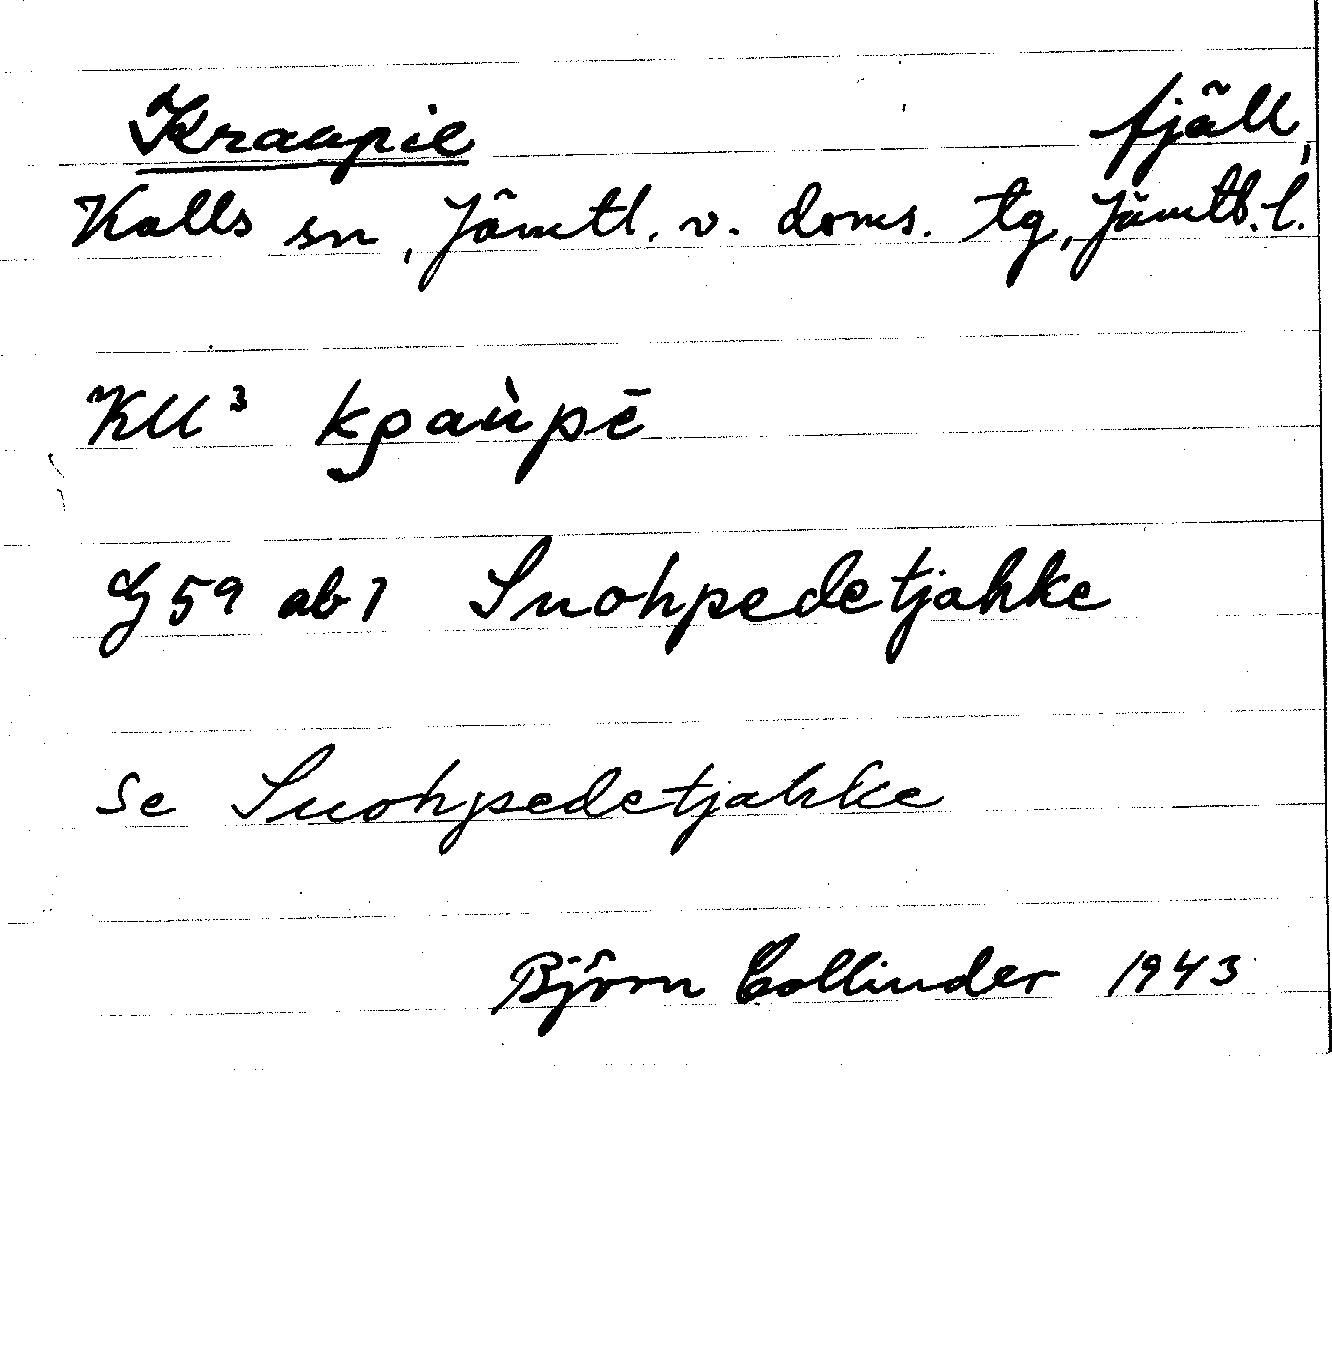 Kraapie fjäll,
Kalls sn, Jämtl. v. doms. tg, Jämtl. l.
KU³ kρaùpē
G 59 ab 1 Suohpedetjahke
se Suohpedetjahke
Björn Collinder 1943